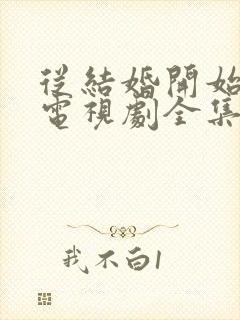 從結婚開始
電視劇全集
我不白1